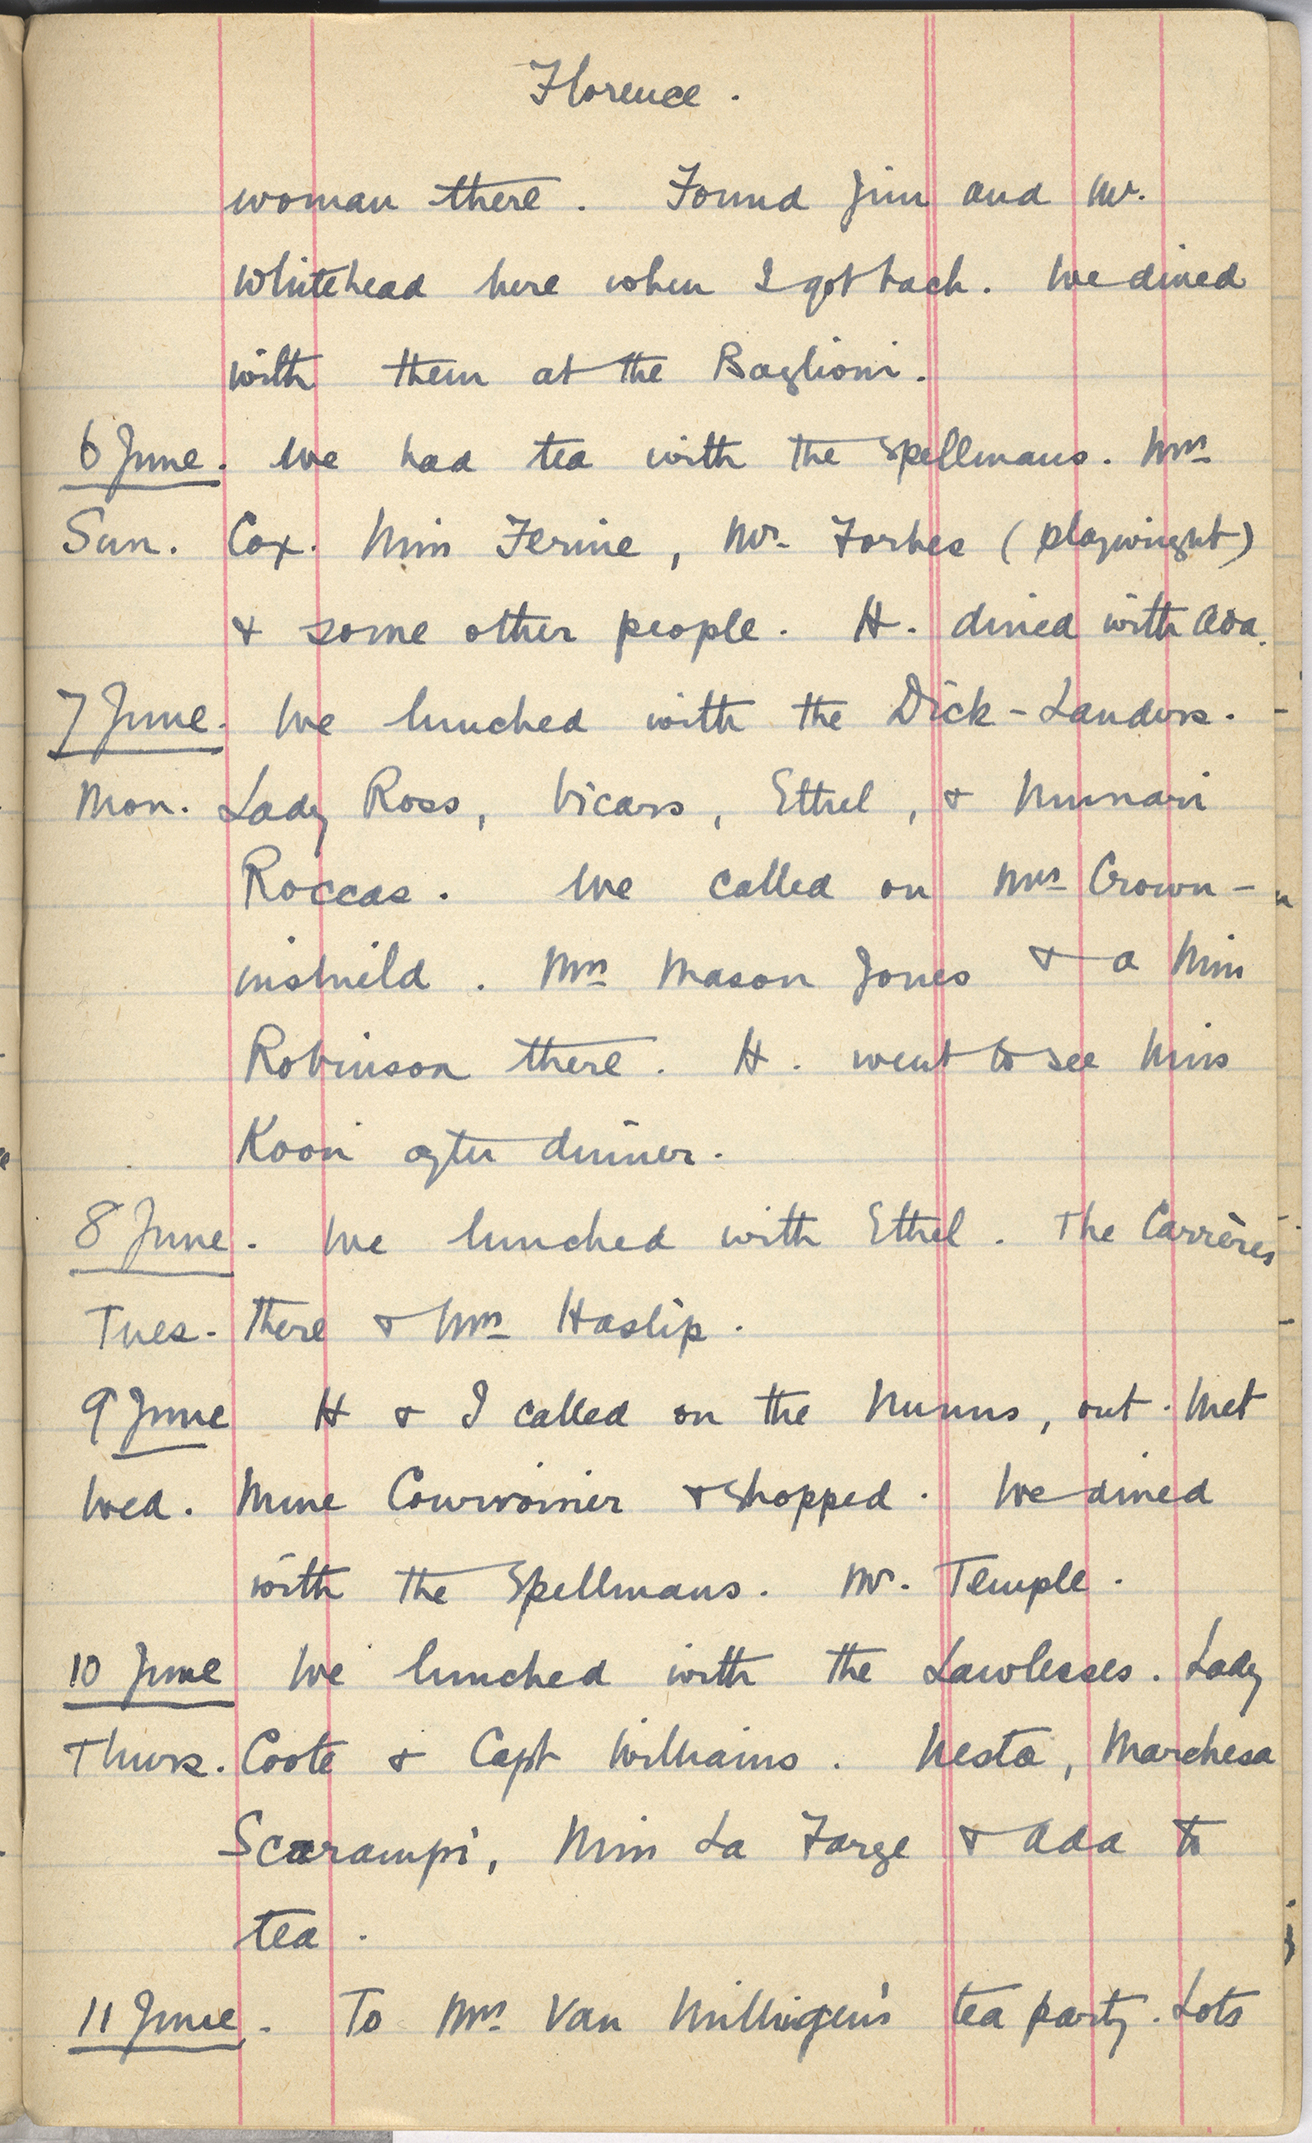 Florence.
woman there. Found Jim and Mr.
Whitehead here when I got back. We dined
with them at the Baglioni.
6 June. We had tea with the Spellmans. Mrs
Sun. Cox. Miss Ferine, Mr. Forbes (playwright)
& some other people. H. dined with Ada.
7 June. We lunched with the Dick-Lauders.
Mon. Lady Ross, Vicars, Ethel, &
Roccas. We called on Mrs Crown-
inshield. Mrs Mason Jones & a Miss
Robinson there. H. went to see Miss
Koon after dinner.
8 June. We lunched with Ethel. The Carrères
Tues. there & Mrs Haslip.
9 June H & I called on the Nunns, out. Met
Wed. Mme & shopped. We dined
with the Spellmans. Mr. Temple.
10 June We lunched with the Lawlesses. Lady
Thurs. Coote & Capt Williams. Nesta, Marchesa
Scarampi, Miss La Farge & Ada to
tea.
11 June. To Mrs Van Millingen's tea party. Lots